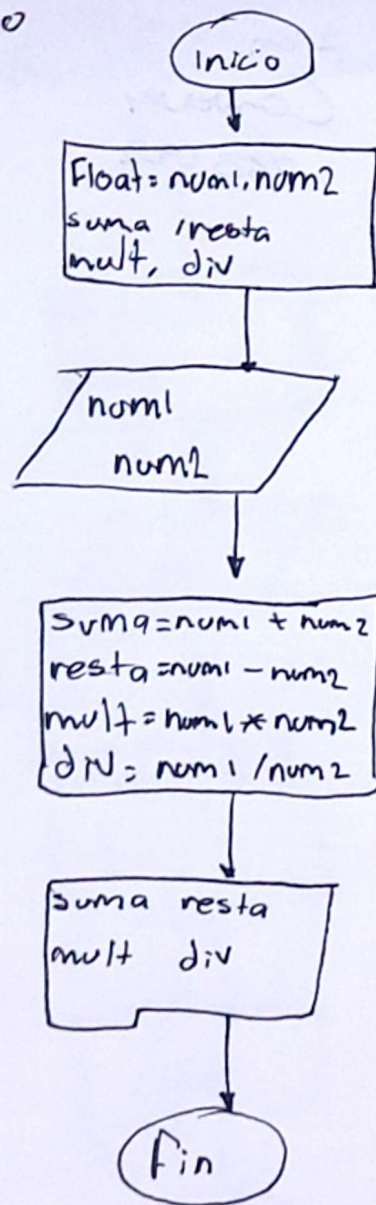 o
Inicio
Float= num1, num2
suma /resta
mult, div
num1
num2
suma=num1 + num2
resta=num1 - num2
mult=num1 * num2
div= num1 /num2
suma resta
mult div
Fin